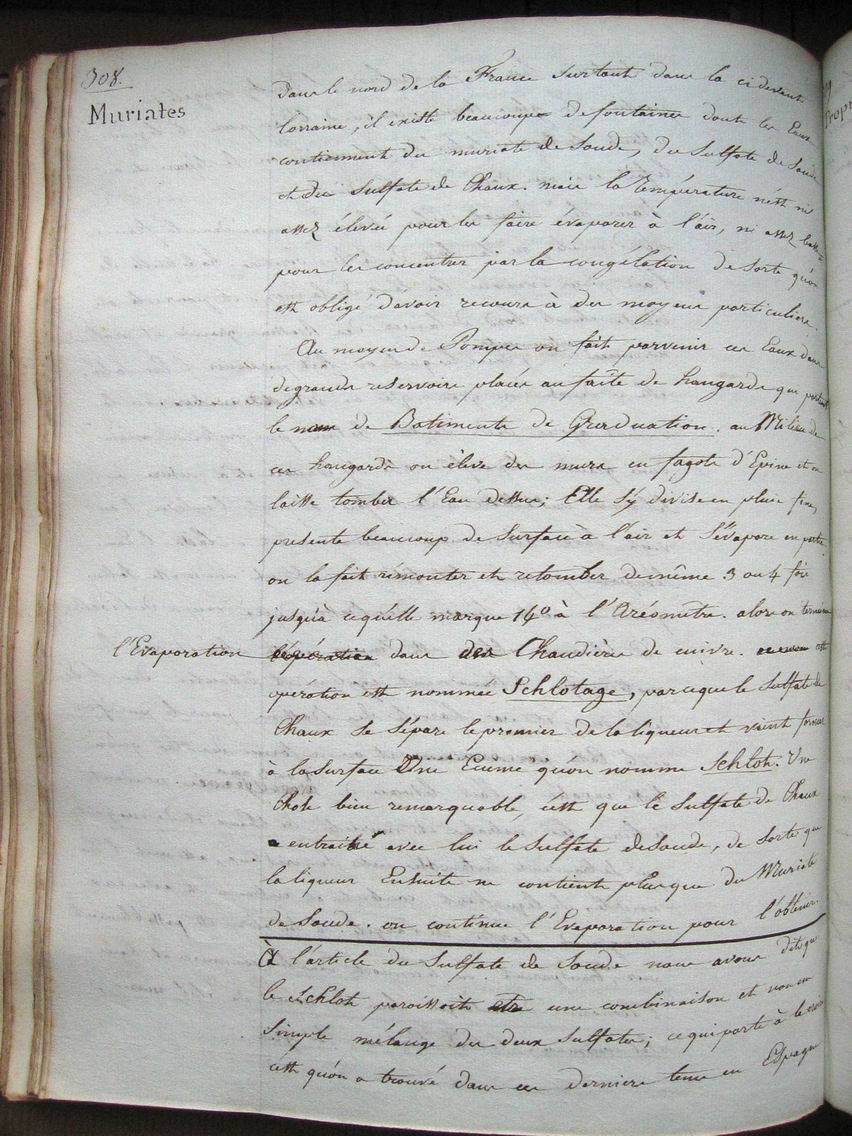 308.
Muriates
dans le nord de la France surtout dans la cidevant
lorraine, il existe beaucoup de fontaines dont les Eaux
contiennent du muriate de Soude, du Sulfate de Soude
et du Sulfate de Chaux. mais la Température n'est ni
assez élevée pour les faire évaporer à l'air, ni assez basse
pour les concentrer par la congélation de sorte qu'on
est obligé d'avoir recours à des moyens particuliers.
Au moyen de Pompes on fait parvenir ces Eaux dans
de grands reservoirs placés au faîte de hangards qui portent
le nom de Batiments de Graduation. au Milieu de
ces hangards on éleve des murs en fagots d'Epine et on
laisse tomber l'Eau dessus; Elle s'y divise en pluie fine,
presente beaucoup de Surface à l'air et S'évapore en partie.
on la fait remonter et retomber de même 3 ou 4 fois
jusqu'à cequ'elle marque 14° à l'Aréomètre. alors on termine
l'Evaporation dans des Chaudières de cuivre. cette
opération est nommée Schlotage, parceque le Sulfate de
Chaux se sépare le premier de la liqueur et vient former
à la Surface Une Ecume qu'on nomme Schlot. Une
Chose bien remarquable, c'est que le Sulfate de Chaux
a entraîné avec lui le Sulfate de Soude, de sorte que
la liqueur Ensuite ne contient plus que du Muriate
de Soude. on continue l'Evaporation pour l'obtenir.
À l'article du Sulfate de Soude nous avons dit que
le Schlot paroissoit être une combinaison et non un
simple mélange des deux Sulfates; ce qui porte à le croire
c'est qu'on a trouvé dans ces derniers tems en Espagne